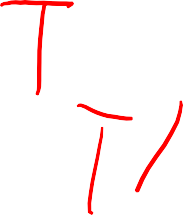 T
T/